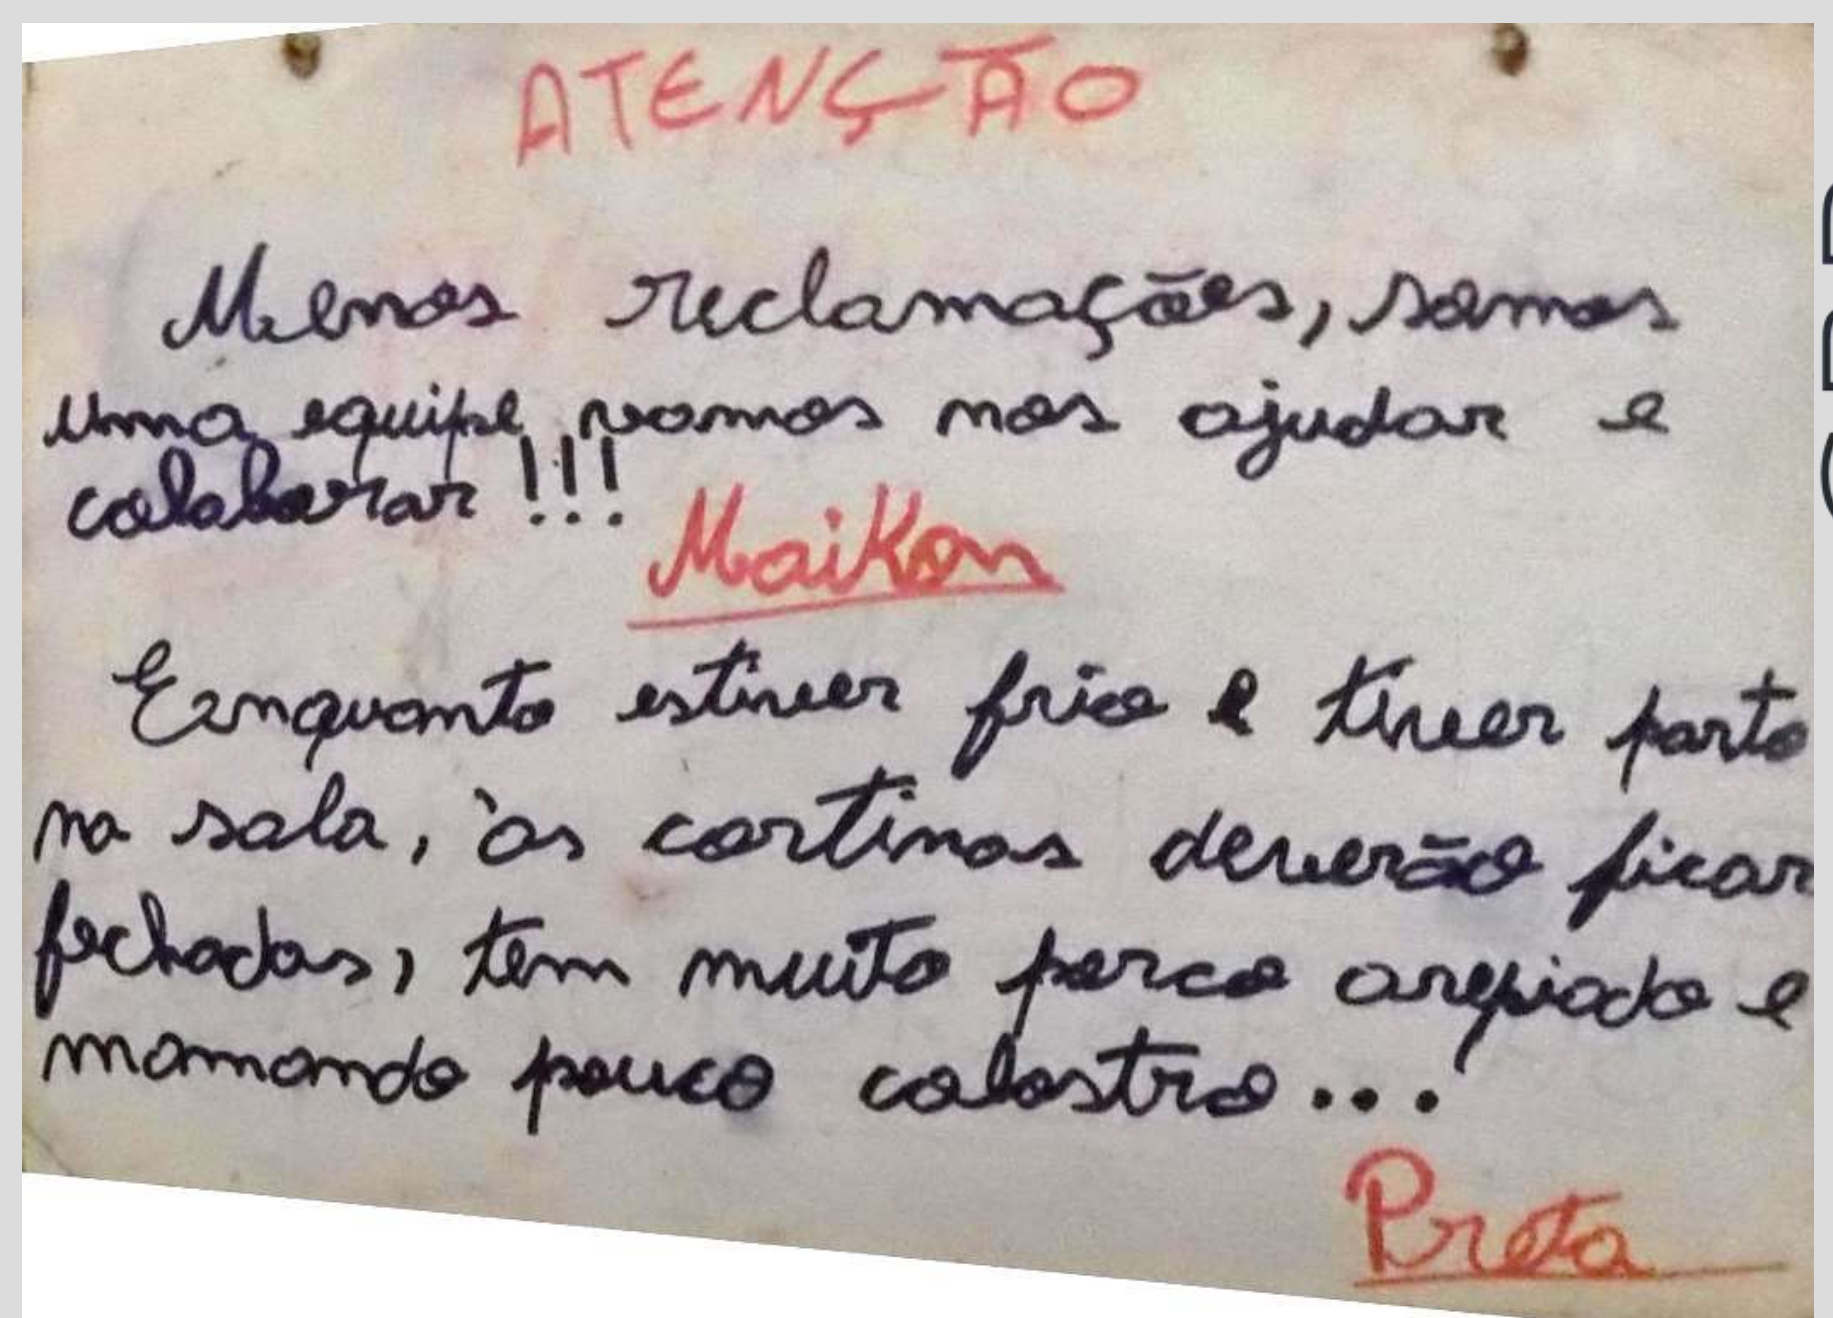 ATENÇÃO
Menos reclamações, somos
uma equipe vamos nos ajudar e
colaborar !!!
Maikon
Enquanto estiver frio e tiver parto
na sala, às cortinas deverão ficar
fechadas, tem muito porco arepiado e
mamando pouco colostro...
Preta